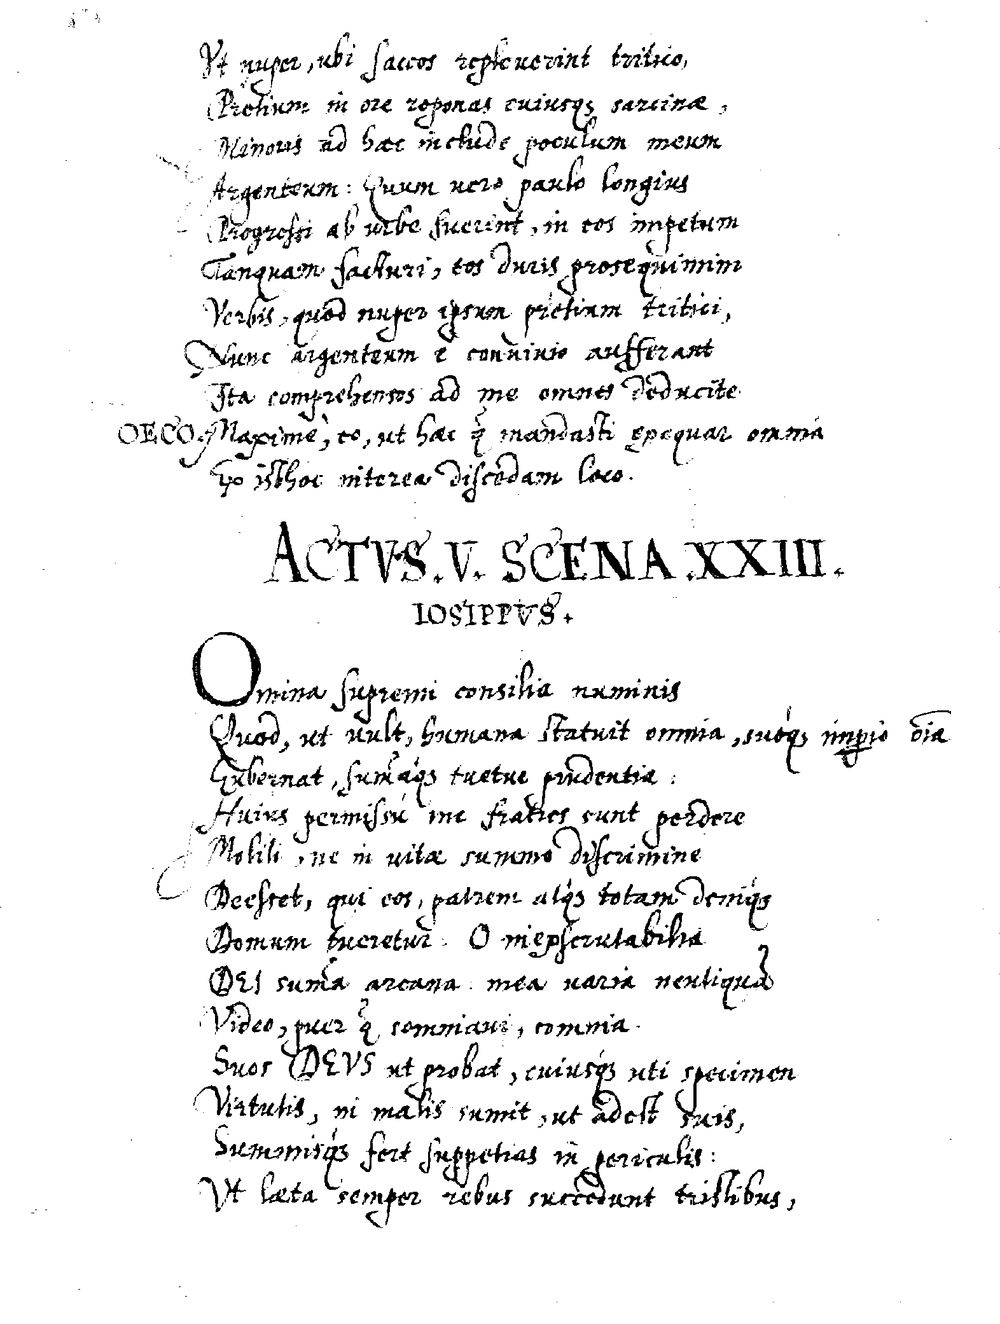 Vt nuper, ubi saccos repleverint tritico,
Pretium in ore reponas cuiusqꝫ sarcinæ,
Minoris ad hæc include poculum meum
Argenteum: Quum uero paulo longius
Progressi ab urbe fuerint, in eos impetum
Tanquam facturi, eos duris prosequimini
Verbis, quod nuper ipsum pretium tritici,
Nunc argenteum è conuiuio aufferant
Ita comprehensos ad me omnes deducite
OECO. Maximè, eo, ut hæc q̃ mandasti exequar omnia
Ex isthoc interea discedam loco.
ACTVS. V. SCENA. XXIII.
IOSIPPVS.
Omina supremi consilia numinis
Quod, ut uult, humana statuit omnia, suoqꝫ imꝑio oı̃a
Gubernat, sum̃aqꝫ tuetur prudentia:
Huius permissu me fratres sunt perdere
Moliti, ne in uitæ summo discrimine
Deesset, qui eos, patrem atqꝫ totam deniqꝫ
Domum tueretur. O inexscrutabilia
DEI sum̃a arcana. mea uaria neutiquã
Video, puer q̃ somniaui, somnia.
Suos DEVS ut probat, cuiusqꝫ uti specimen
Virtutis, in malis sumit, ut adest suis,
Summisqꝫ fert suppetias in periculis:
Vt læta semper rebus succedunt tristibus,